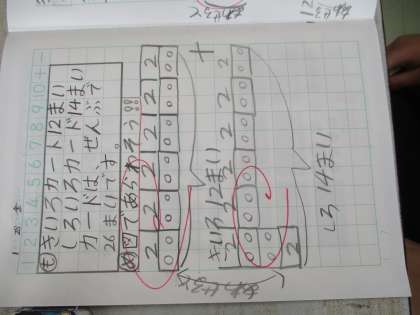 1 2 3 4 5 6 7 8 9 10 + -
も きいろカード12まい
しろいろカード14まい
カードは ぜんぶで
26まいです。
め 図であらわそう!!
2 2 2 2 2 2
きいろ12まい
+
2 2 2 2 2 2 2
しろ 14まい
あわせると